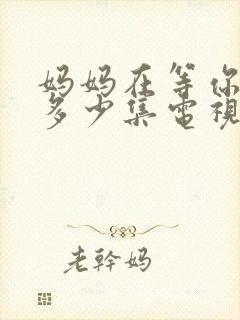 妈妈在等你
多少集電視
老幹妈